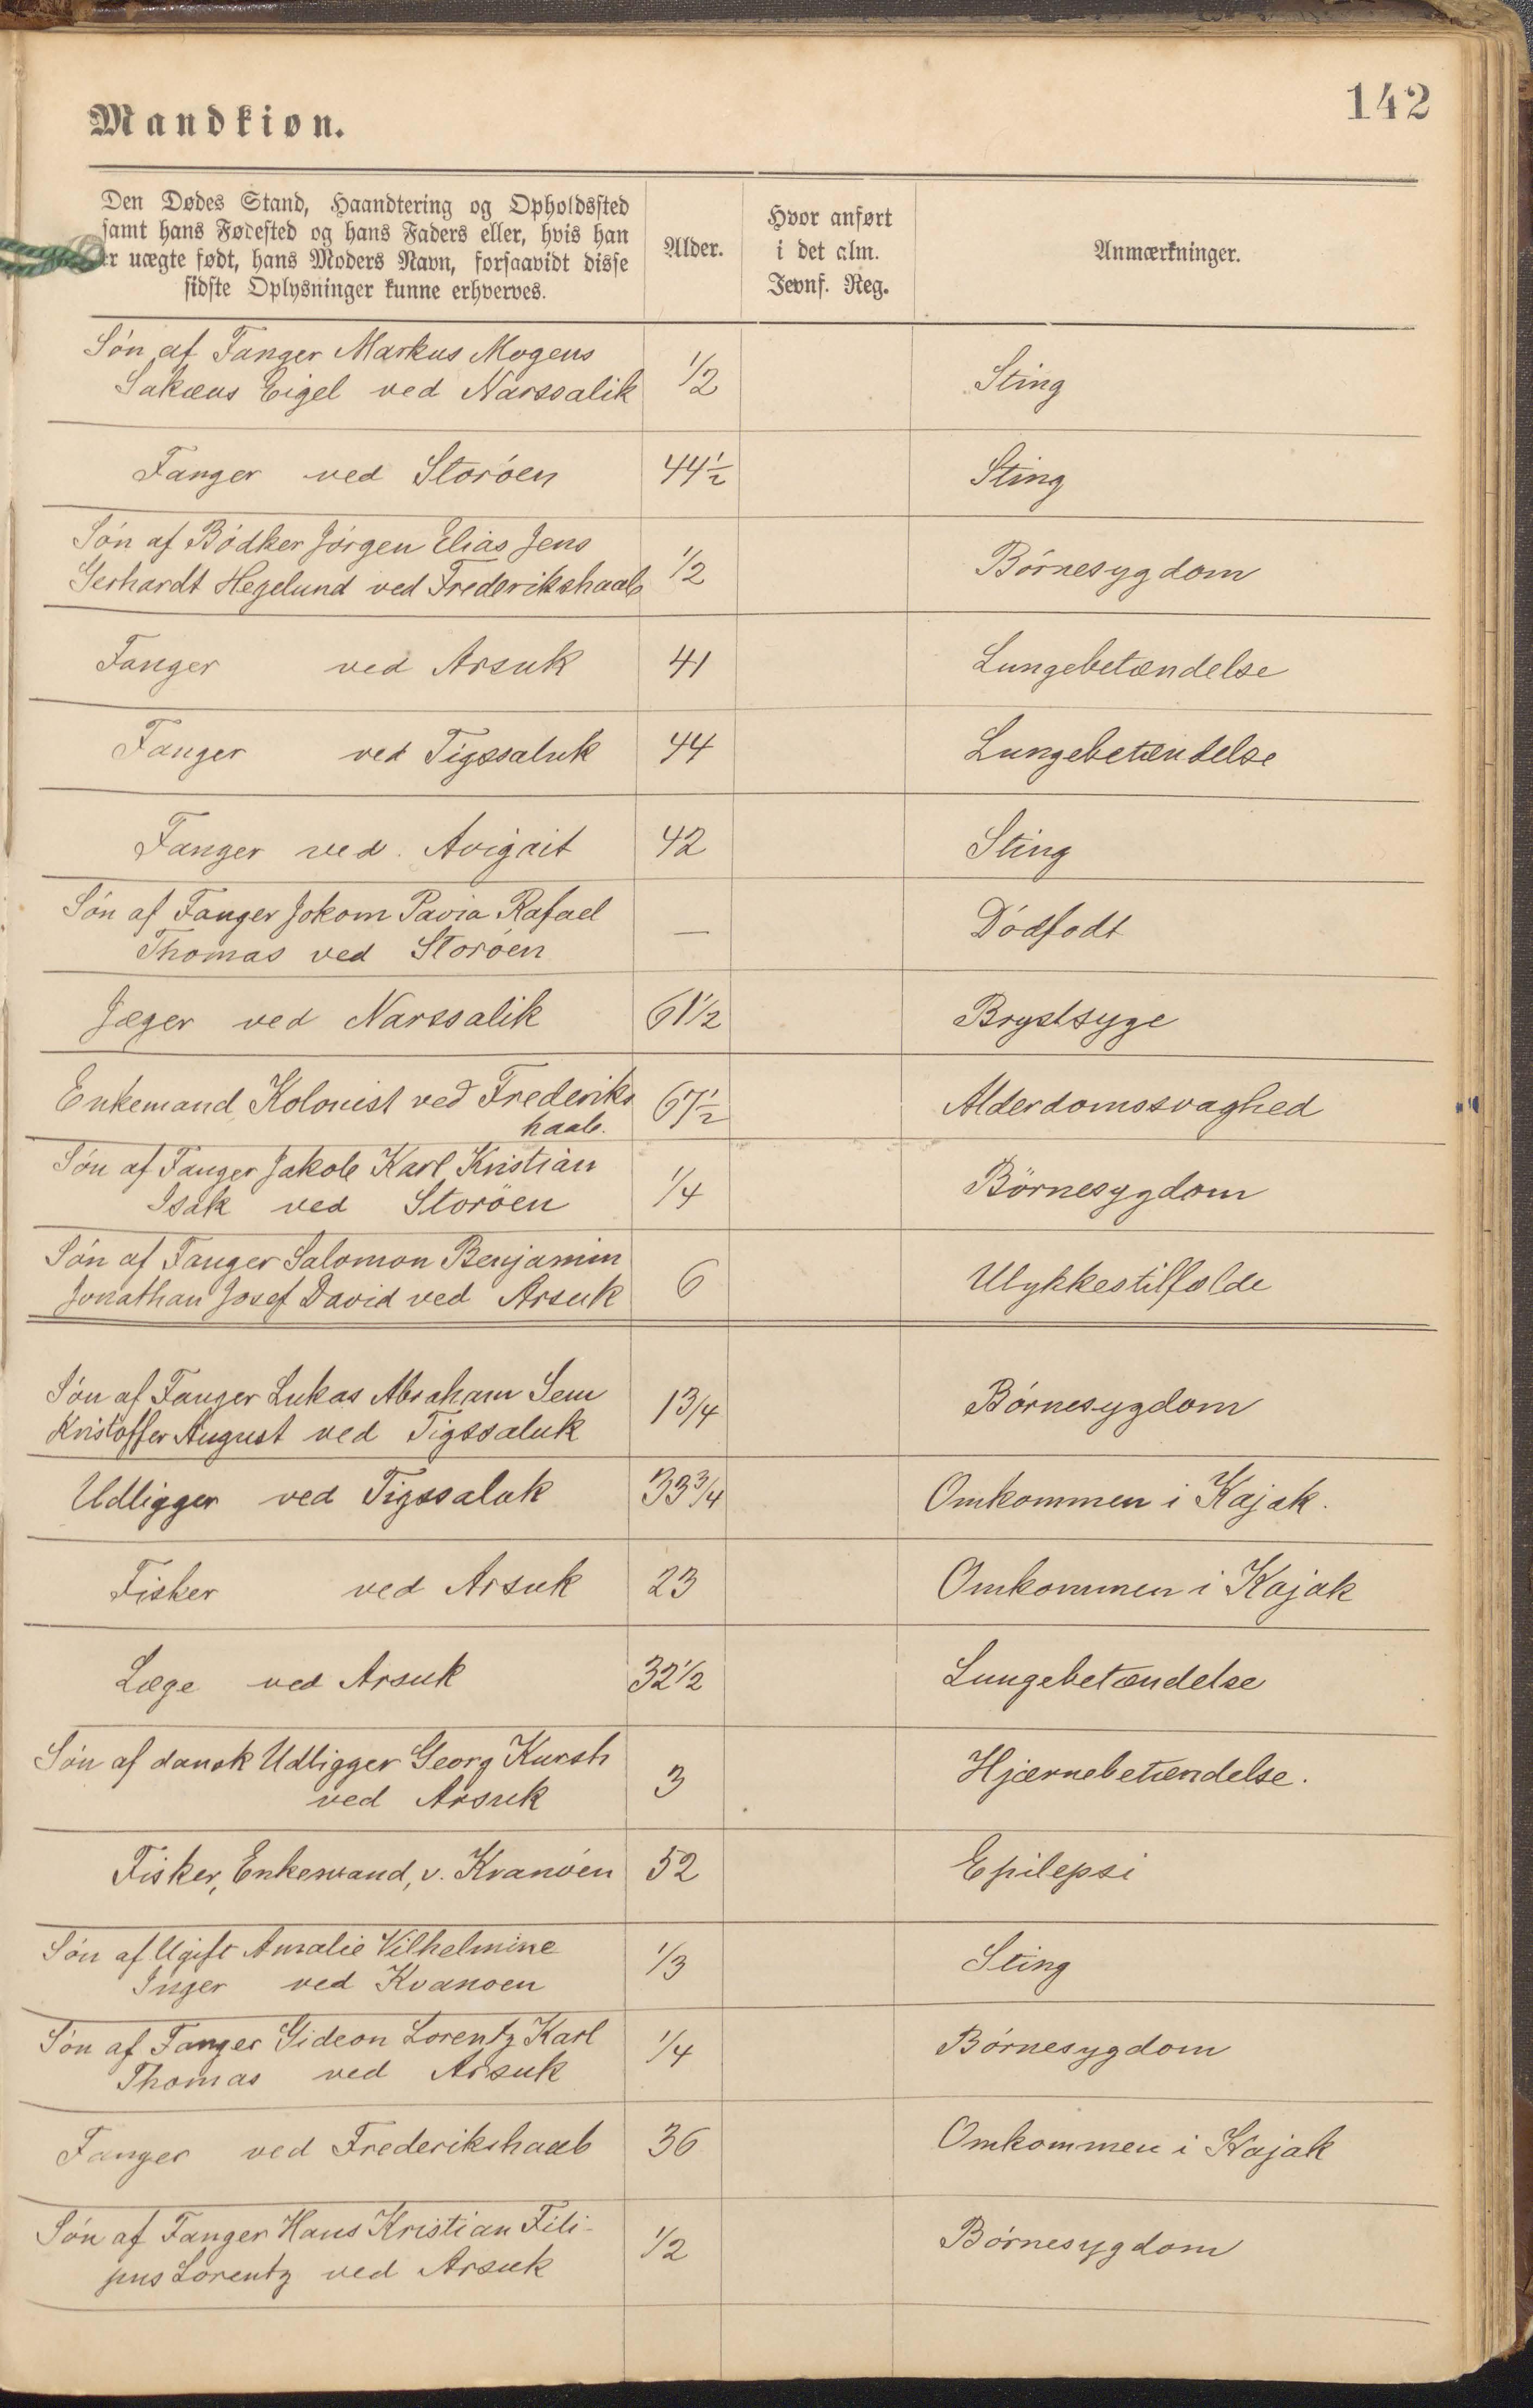 142
Mandkiøn.
Den Dødes Stand, Haandtering og Opholdssted
samt hans Fødested og hans Faders eller, hvis han
er uægte født, hans Moders Navn, forsaavidt disse
sidste Oplysninger kunne erhverves.
Alder.
Hvor anført
i det alm.
Jevnf. Reg.
Anmærkninger.
Søn af Fanger Markus Mogens
Sakæus Eigel ved Narssalik 1/2 Sting
Fanger ved Storøen 44 1/2 Sting
Søn af Bødker Jørgen Elias Jens
Gerhardt Hegelund ved Frederikshaab 1/2 Børnesygdom
Fanger ved Arsuk 41 Lungebetændelse
Fanger ved Tigssaluk 44 Lungebetændelse
Fanger ved. Avigait 42 Sting
Søn af Fanger Jokom Pavia Rafael
Thomas ved Storøen — Dødfødt
Jæger ved Narssalik 61 1/2 Brystsyge
Enkemand Kolonist ved Frederiks
haab. 67 1/2 Alderdomssvaghed
Søn af Fanger Jakob Karl Kristian
Isak ved Storøen 1/4 Børnesygdom
Søn af Fanger Salomon Benjamin
Jonathan Josef David ved Arsuk 6 Ulykkestilfælde
Søn af Fanger Lukas Abraham Sem
Kristoffer August ved Tigssaluk 1 3/4 Børnesygdom
Udligger ved Tigssaluk 33 3/4 Omkommen i Kajak.
Fisker ved Arsuk 23 Omkommen i Kajak
Læge ved Arsuk 32 1/2 Lungebetændelse
Søn af dansk Udligger Georg Kursh
ved Arsuk 3 Hjærnebetændelse.
Fisker, Enkemand, v. Kvanøen 52 Epilepsi
Søn af Ugift Amalie Vilhelmine
Inger ved Kvanøen 1/3 Sting
Søn af Fanger Gideon Lorentz Karl
Thomas ved Arsuk 1/4 Børnesygdom
Fanger ved Frederikshaab 36 Omkommen i Kajak
Søn af Fanger Hans Kristian Fili-
pus Lorentz ved Arsuk 1/2 Børnesygdom